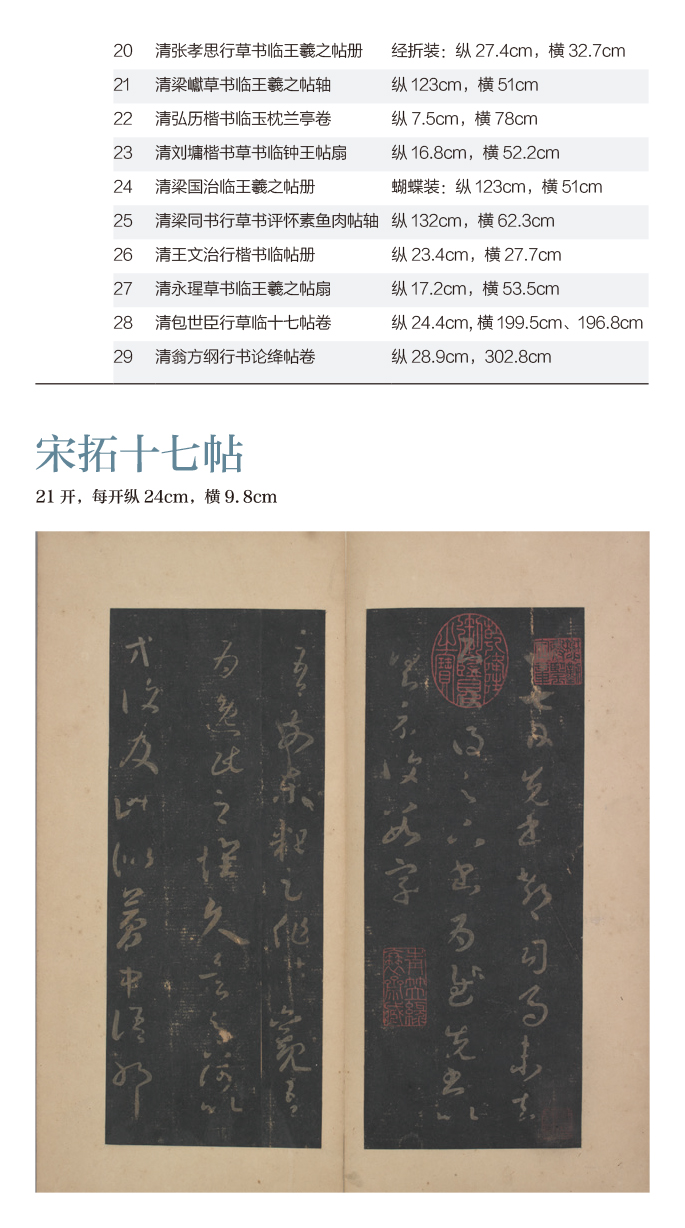 20 清张孝思行草书临王羲之帖册 经折装：纵 27.4cm，横 32.7cm
21 清梁巘草书临王羲之帖轴 纵 123cm，横 51cm
22 清弘历楷书临玉枕兰亭卷 纵 7.5cm，横 78cm
23 清刘墉楷书草书临钟王帖扇 纵 16.8cm，横 52.2cm
24 清梁国治临王羲之帖册 蝴蝶装：纵 123cm，横 51cm
25 清梁同书行草书评怀素鱼肉帖轴 纵 132cm，横 62.3cm
26 清王文治行楷书临帖册 纵 23.4cm，横 27.7cm
27 清永瑆草书临王羲之帖扇 纵 17.2cm，横 53.5cm
28 清包世臣行草临十七帖卷 纵 24.4cm, 横 199.5cm、196.8cm
29 清翁方纲行书论绛帖卷 纵 28.9cm，302.8cm
宋拓十七帖
21 开，每开纵 24cm，横 9.8cm
七日先書郗司馬未去
得足下書為慰先書以
具示復數字
吾前東粗足作佳觀吾
為逸民之懷久矣足下何以
方復及此似夢中語耶